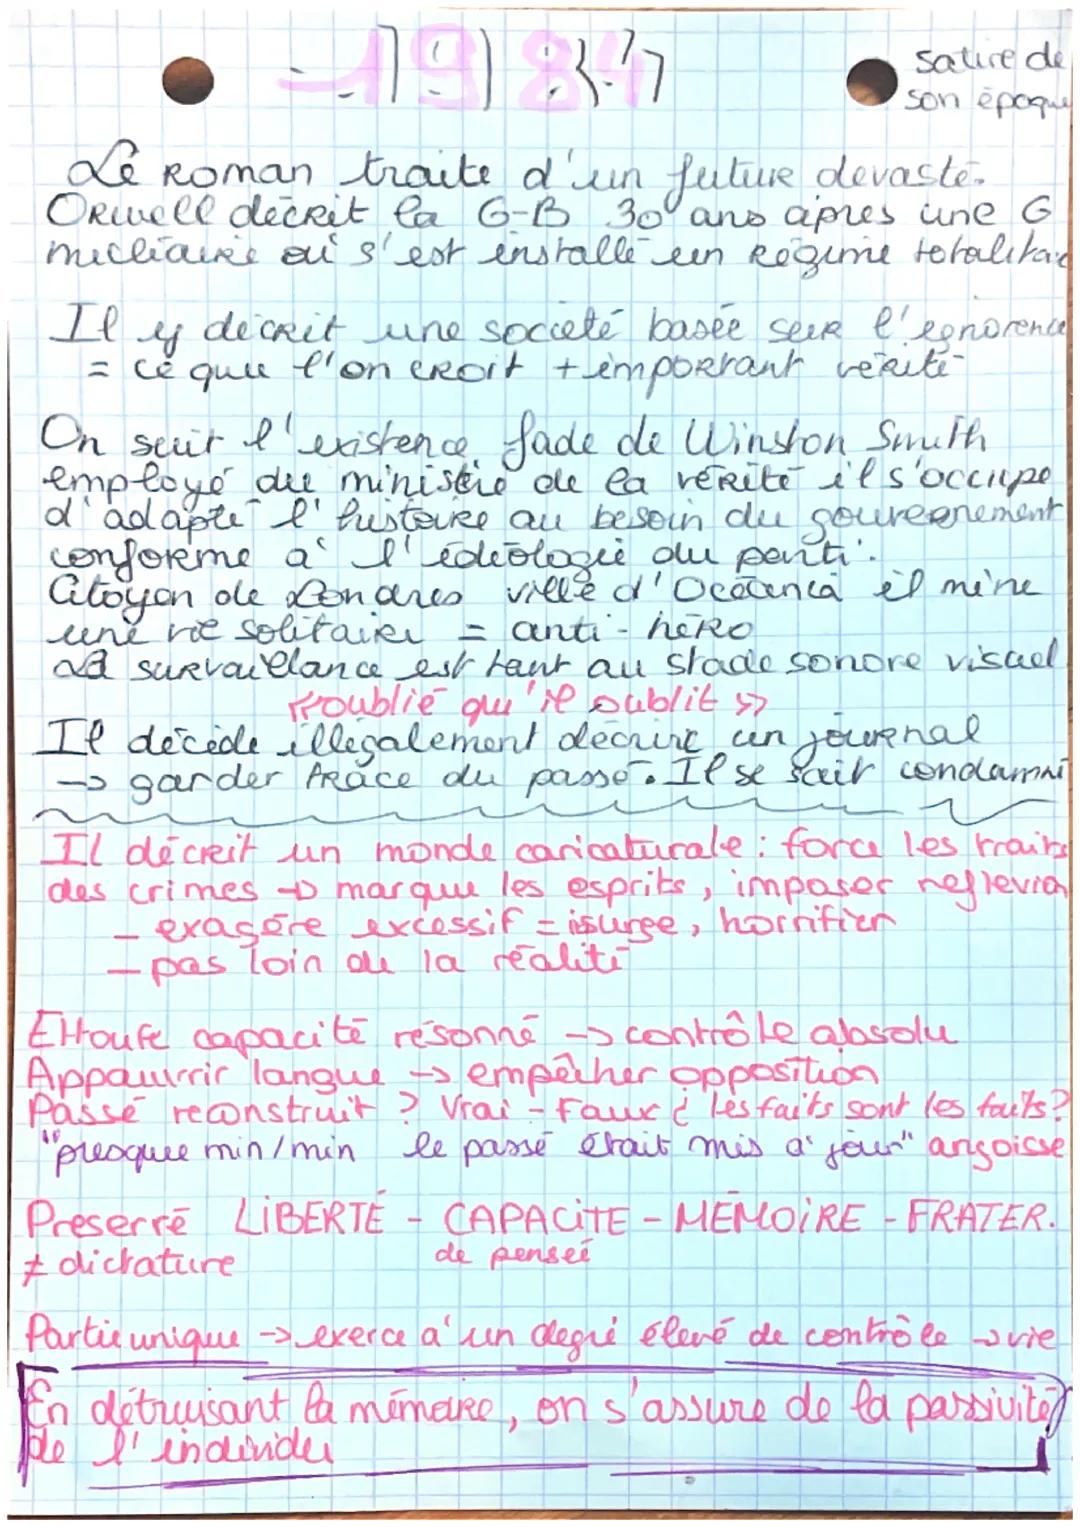 1984
satire de
son époque
Le Roman traite d'un future devasté.
ORwell décrit la G-B 30 ans après une G
nucliaire où s'est installé un Régime totalitai
Il y décrit une société basée sur l'ignorence
= ce que l'on croit + important vérité
On suit l'existence fade de Winston Smith
employé du ministère de la vérité il s'occupe
d'adapté l'histoire au besoin du gouvernement
conforme à l'idéologie du parti.
Citoyen de Londres ville d'Océania il mène
une vie solitaire = anti-héro
La survaillance est tant au stade sonore visuel
« oublié qu'il oublit »
Il décide illégalement décrire un journal
→ garder trace du passé. Il se sait condamné
Il décrit un monde caricaturale : force les traits
des crimes → marque les esprits, imposer reflexion
- exagère excessif = isurge, horrifier
- pas loin de la réalité
Ettoufe capacité résonné → contrôle absolu
Appauvrir langue → empêcher opposition
Passé reconstruit ? Vrai - Faux ¿ les faits sont les faits ?
"presque min/min le passé était mis à jour" angoisse
Preservé LiBERTÉ - CAPACiTE - MÉMOiRE - FRATER.
≠ dictature de penseé
Partie unique → exerce à un degré élevé de contrôle → vie
En détruisant la mémoire, on s'assure de la passivité
de l'individu